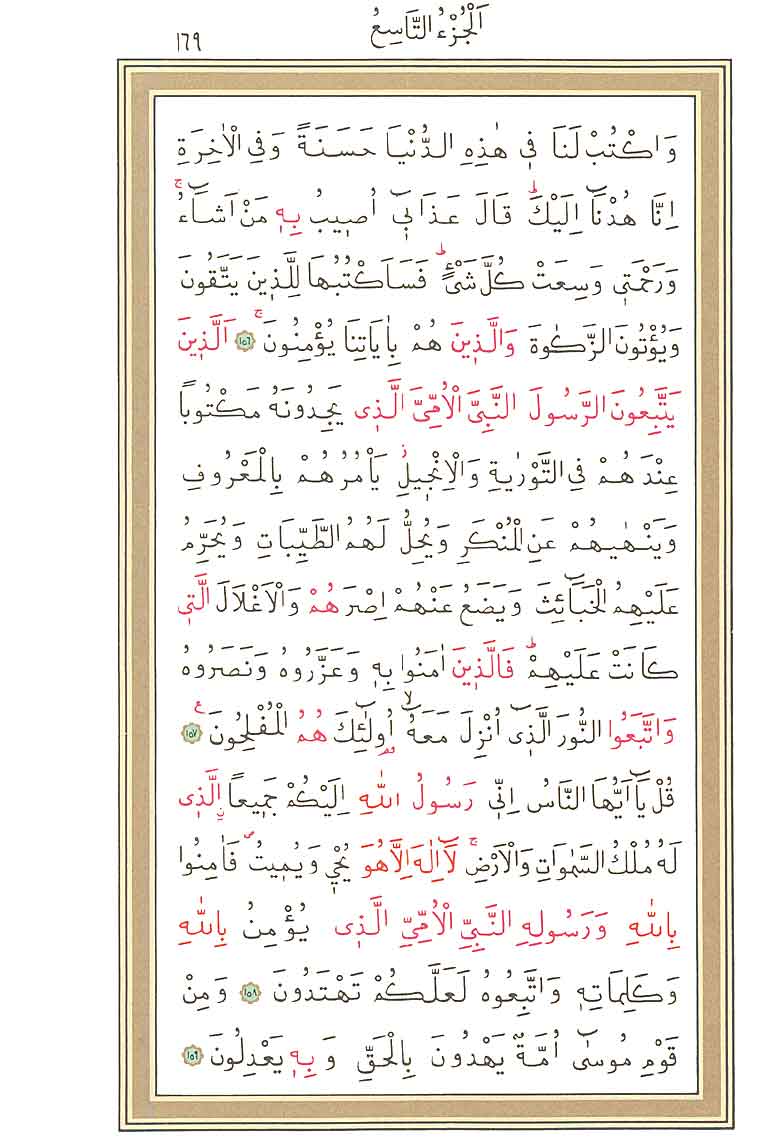 اَلْجُزْءُ التَّاسِعُ
١٦٩
وَاكْتُبْ لَنَا فٖى هٰذِهِ الدُّنْيَا حَسَنَةً وَفِى الْاٰخِرَةِ
اِنَّا هُدْنَٓا اِلَيْكَؕ قَالَ عَذَابٖٓى اُصٖيبُ بِهٖ مَنْ اَشَٓاءُۚ
وَرَحْمَتٖى وَسِعَتْ كُلَّ شَیْءٍؕ فَسَاَكْتُبُهَا لِلَّذٖينَ يَتَّقُونَ
وَيُؤْتُونَ الزَّكٰوةَ وَالَّذٖينَ هُمْ بِاٰيَاتِنَا يُؤْمِنُونَۚ ﴿١٥٦﴾ اَلَّذٖينَ
يَتَّبِعُونَ الرَّسُولَ النَّبِىَّ الْاُمِّىَّ الَّذٖى يَجِدُونَهُ مَكْتُوبًا
عِنْدَهُمْ فِى التَّوْرٰيةِ وَالْاِنْجٖيلِؗ يَاْمُرُهُمْ بِالْمَعْرُوفِ
وَيَنْهٰيهُمْ عَنِ الْمُنْكَرِ وَيُحِلُّ لَهُمُ الطَّيِّبَاتِ وَيُحَرِّمُ
عَلَيْهِمُ الْخَبَٓائِثَ وَيَضَعُ عَنْهُمْ اِصْرَهُمْ وَالْاَغْلَالَ الَّتٖى
كَانَتْ عَلَيْهِمْؕ فَالَّذٖينَ اٰمَنُوا بِهٖ وَعَزَّرُوهُ وَنَصَرُوهُ
وَاتَّبَعُوا النُّورَ الَّذٖٓى اُنْزِلَ مَعَهُٓۙ اُولٰٓئِكَ هُمُ الْمُفْلِحُونَࣖ ﴿١٥٧﴾
قُلْ يَٓا اَيُّهَا النَّاسُ اِنّٖى رَسُولُ اللّٰهِ اِلَيْكُمْ جَمٖيعًاۨ الَّذٖى
لَهُ مُلْكُ السَّمٰوَاتِ وَالْاَرْضِۚ لَٓا اِلٰهَ اِلَّا هُوَ يُحْيٖ وَيُمٖيتُࣕ فَاٰمِنُوا
بِاللّٰهِ وَرَسُولِهِ النَّبِىِّ الْاُمِّىِّ الَّذٖى يُؤْمِنُ بِاللّٰهِ
وَكَلِمَاتِهٖ وَاتَّبِعُوهُ لَعَلَّكُمْ تَهْتَدُونَ ﴿١٥٨﴾ وَمِنْ
قَوْمِ مُوسٰٓى اُمَّةٌ يَهْدُونَ بِالْحَقِّ وَبِهٖ يَعْدِلُونَ ﴿١٥٩﴾